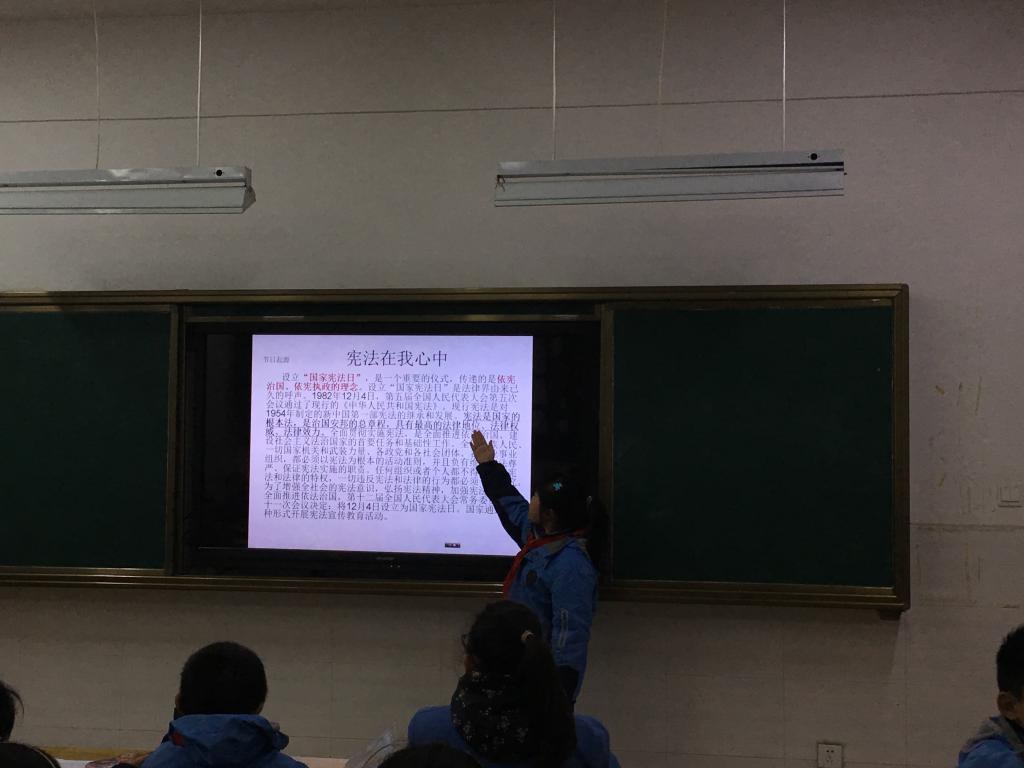 节日起源
宪法在我心中
设立“国家宪法日”，是一个重要的仪式，传递的是依宪
治国、依宪执政的理念。设立“国家宪法日”是法律界由来已
久的呼声。1982年12月4日，第五届全国人民代表大会第五次
会议通过了现行的《中华人民共和国宪法》。现行宪法是对
1954年制定的新中国第一部宪法的继承和发展。宪法是国家的
根本法，是治国安邦的总章程，具有最高的法律地位、法律权
威、法律效力。全面贯彻实施宪法，是全面推进依 国、建
设社会主义法治国家的首要任务和基础性工作。 人民、
一切国家机关和武装力量、各政党和各社会团体、 事业
组织，都必须以宪法为根本的活动准则，并且负有 尊
严、保证宪法实施的职责。任何组织或者个人都不 宪
法和法律的特权，一切违反宪法和法律的行为都必须
为了增强全社会的宪法意识，弘扬宪法精神，加强宪
全面推进依法治国，第十二届全国人民代表大会常务委
十一次会议决定：将12月4日设立为国家宪法日。国家通
种形式开展宪法宣传教育活动。